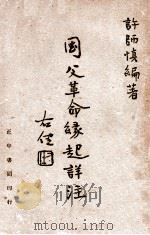 許師慎編著
國父革命緣起詳註
右任
正中書局印行